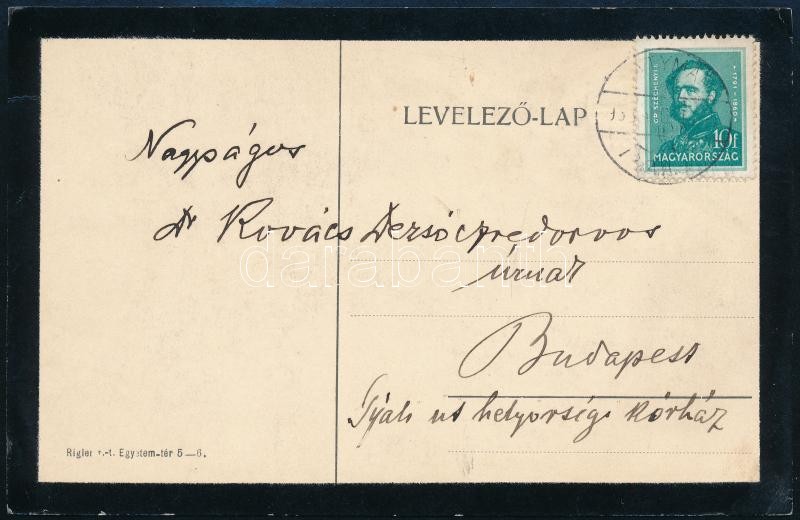 LEVELEZŐ-LAP
GR. SZÉCHENYI I.
1791-1860
10f
MAGYARORSZÁG
Nagyságos
Dr Kovács Dezső ezredorvos
úrnak
Budapest
Gyáli ut helyőrségi kórház
darabanth
Rigler r.-t. Egyetem-tér 5—6.